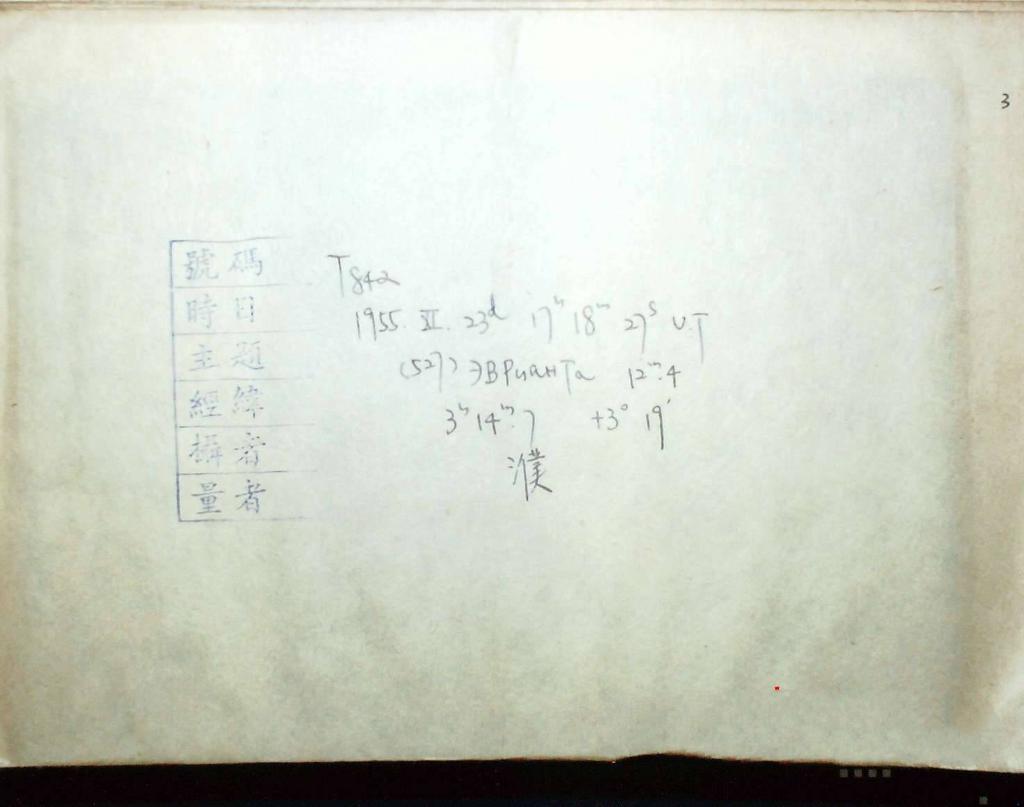 3
號碼 T842
時日 1955. XI. 23d 17h 18m 27s U.T
主題 (527) ЭВРианТа 12m.4
經緯 3h 14m.7 +3° 19′
攝者 濮
量者